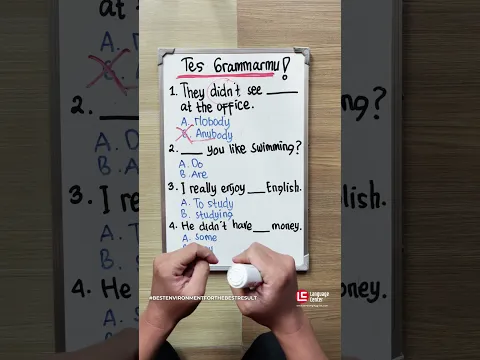 Tes Grammarmu!
1. They didn't see _____
at the office.
A. Nobody
B. Anybody
2. ___ you like swimming?
A. Do
B. Are
3. I really enjoy ___ English.
A. To study
B. studying
4. He didn't have ___ money.
A. some
#BESTENVIRONMENTFORTHEBESTRESULT
LE Language
Center